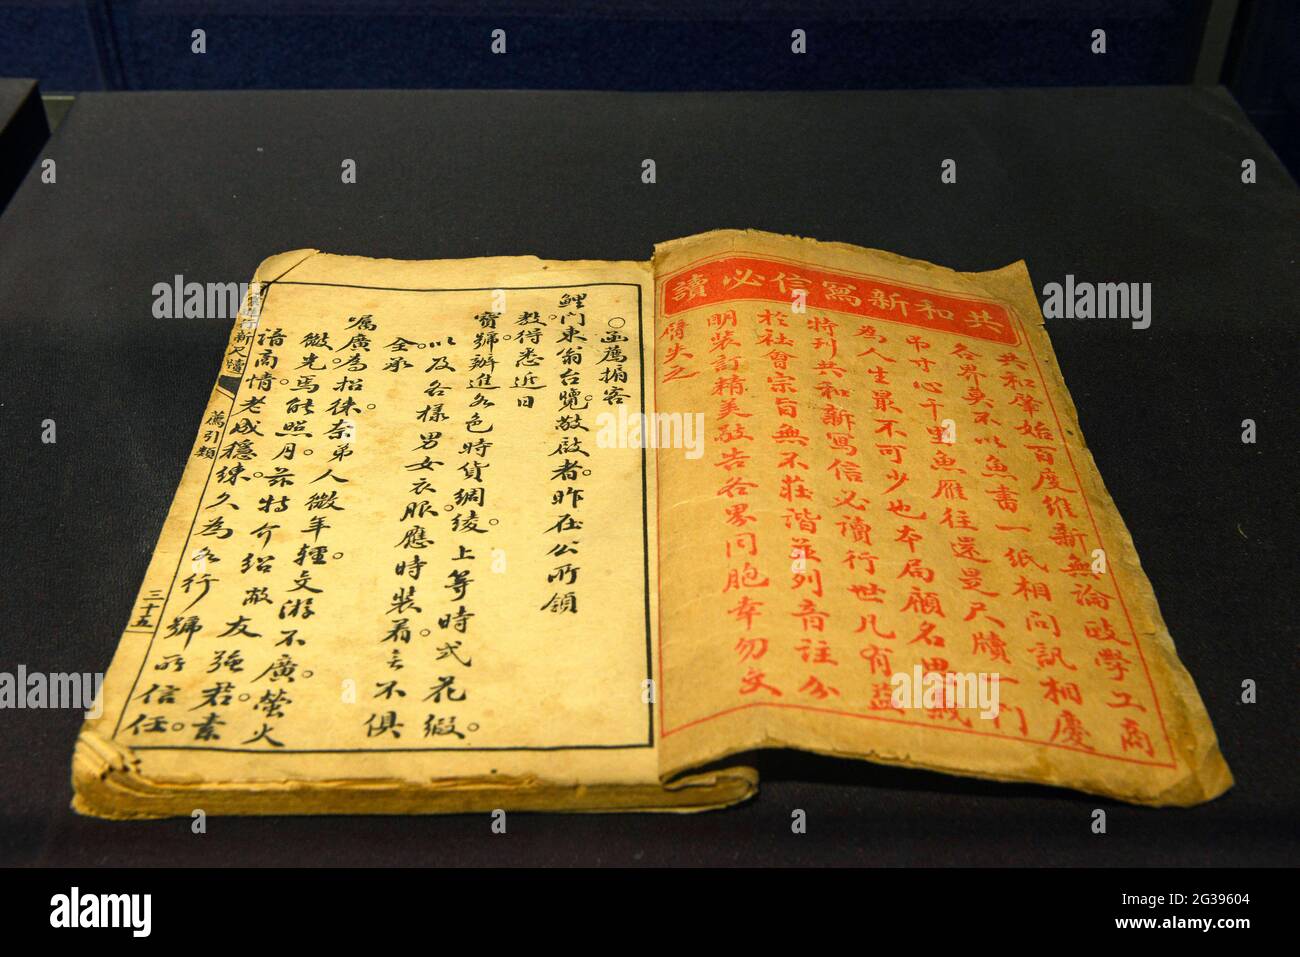 共和新寫信必讀
共和肇始百度維新無論政學工商
各界莫不以魚書一紙相問訊相慶
弔寸心千里魚雁往還是尺牘一門
為人生最不可少也本局顧名思義
特刊共和新寫信必讀行世凡有益
於社會宗旨無不莊諧並列音註分
明裝訂精美敬告各界同胞幸勿交
臂失之
○函薦掮客
鯉門東翁台覽。敬啟者。昨在公所領
教。得悉近日
寶號辦進各色時貨綢綾。上等時式花緞。
以及各樣男女衣服。應時裝着。无不俱
全。承
囑廣為招徠。奈弟人微年輕。交游不廣。螢火
微光。焉能照月。茲特介紹敝友施君。素
諳商情。老成穩練。久為各行號所信任。
新尺牘
薦引類
三十五
alamy
Image ID: 2G39604
www.alamy.com